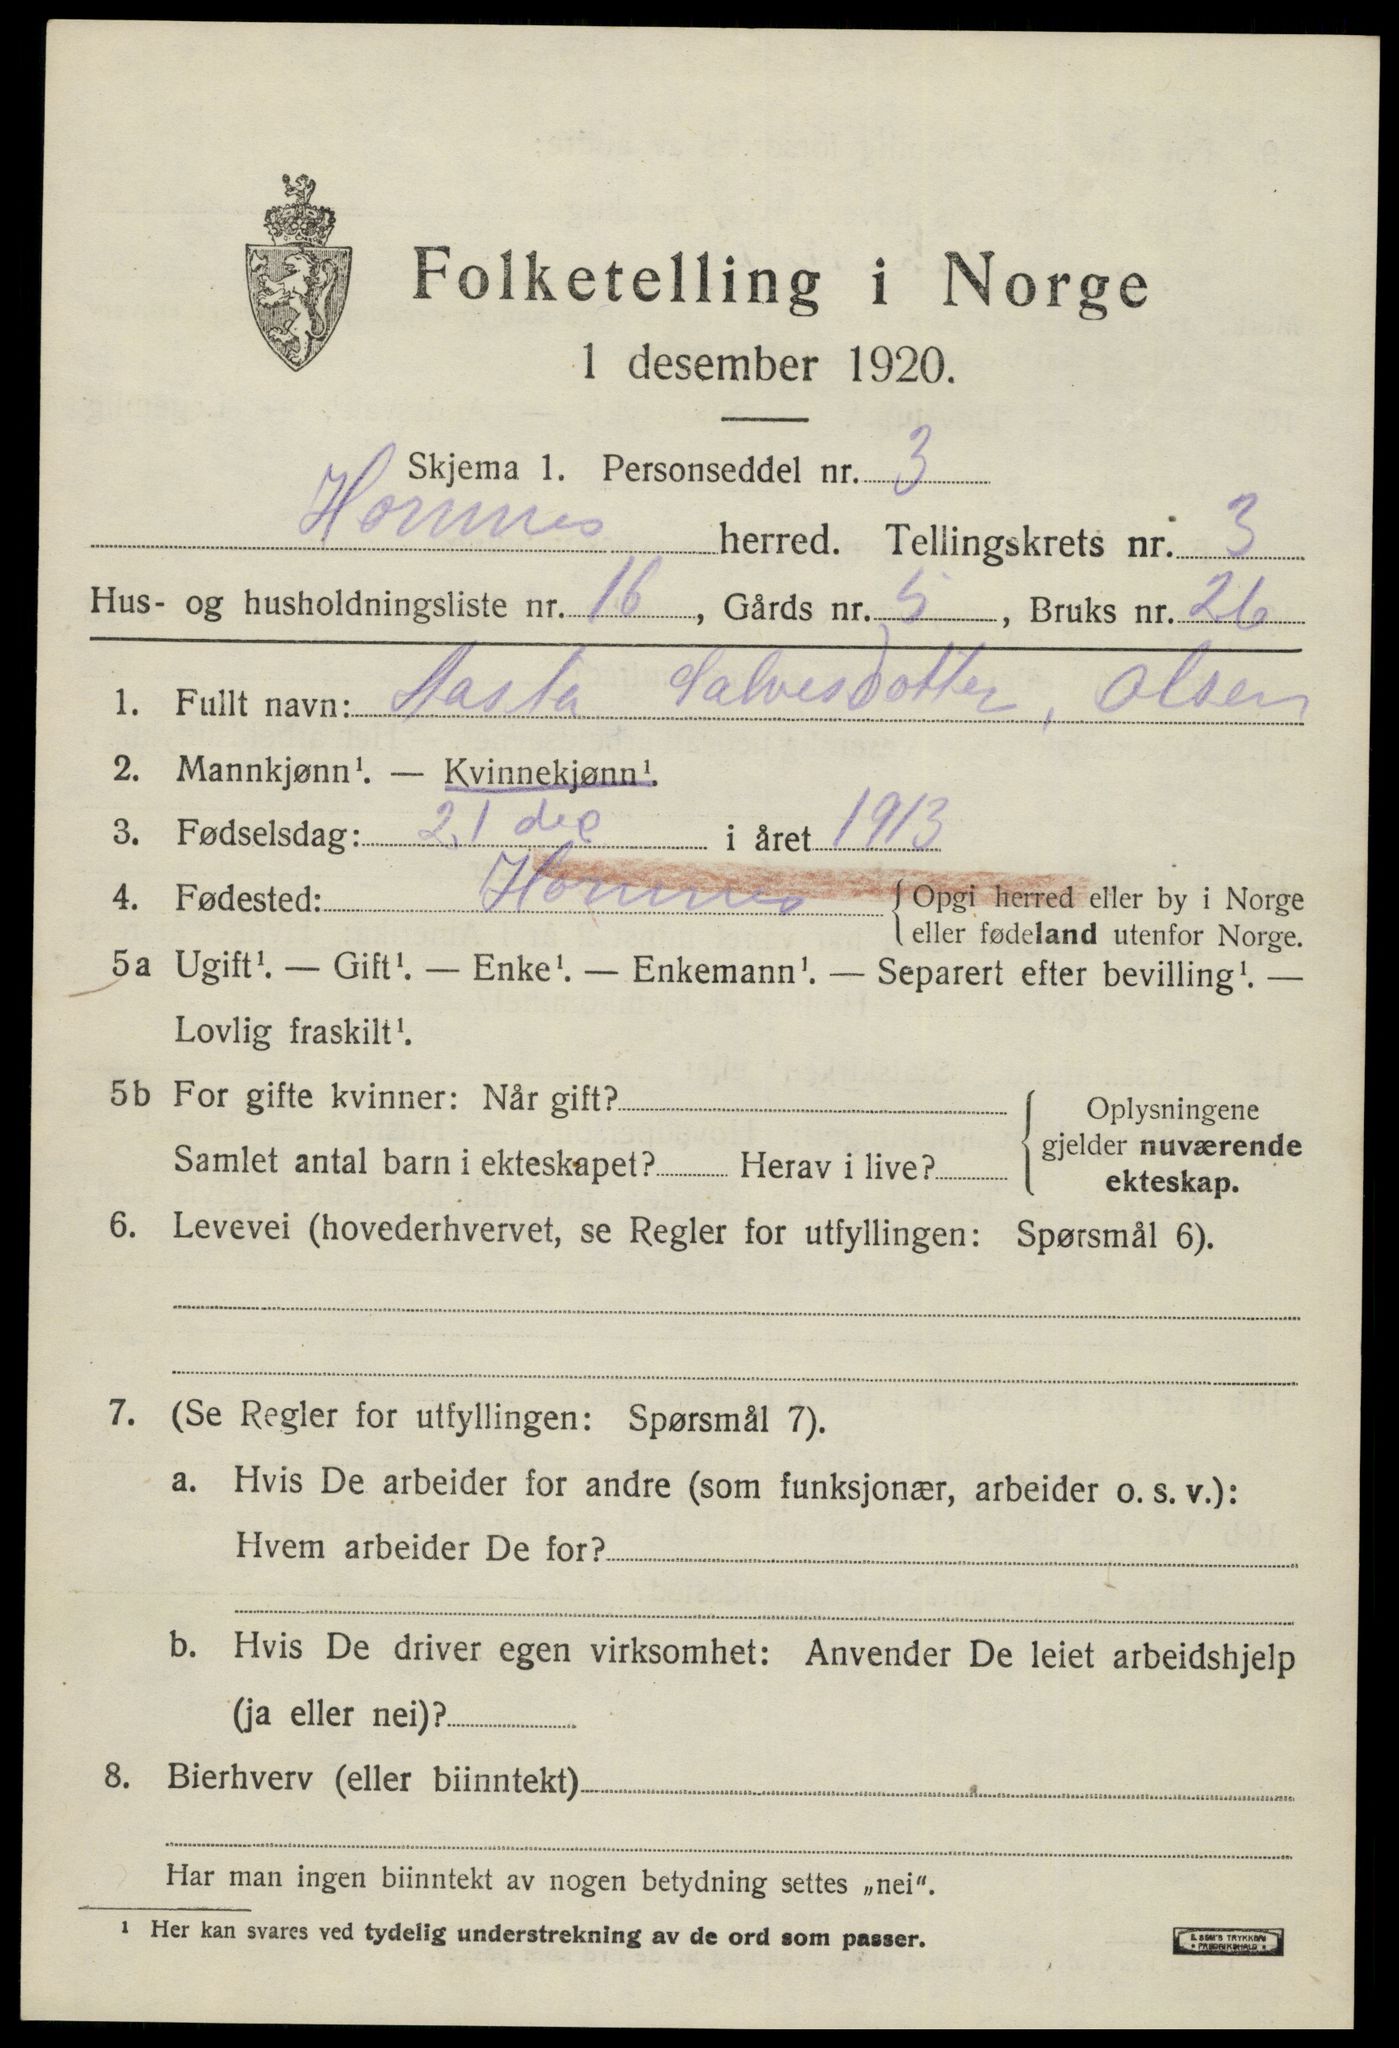 Folketelling i Norge
1 desember 1920.
Skjema 1. Personseddel nr. 3
Hornnes herred. Tellingskrets nr. 3
Hus- og husholdningsliste nr. 16, Gårds nr. 5, Bruks nr. 26
1. Fullt navn: Aasta Salvesdotter, Olsen
2. Mannkjønn¹. — Kvinnekjønn¹.
3. Fødselsdag: 21 dec i året 1913
4. Fødested: Hornnes { Opgi herred eller by i Norge
eller fødeland utenfor Norge.
5a Ugift¹. — Gift¹. — Enke¹. — Enkemann¹. — Separert efter bevilling¹. —
Lovlig fraskilt¹.
5b For gifte kvinner: Når gift? { Oplysningene
gjelder nuværende
Samlet antal barn i ekteskapet? Herav i live?
ekteskap.
6. Levevei (hovederhvervet, se Regler for utfyllingen: Spørsmål 6).
7. (Se Regler for utfyllingen: Spørsmål 7).
a. Hvis De arbeider for andre (som funksjonær, arbeider o. s. v.):
Hvem arbeider De for?
b. Hvis De driver egen virksomhet: Anvender De leiet arbeidshjelp
(ja eller nei)?
8. Bierhverv (eller biinntekt)
Har man ingen biinntekt av nogen betydning settes „nei“.
¹ Her kan svares ved tydelig understrekning av de ord som passer.
E. SEM'S TRYKKERI
• FREDRIKSHALD •